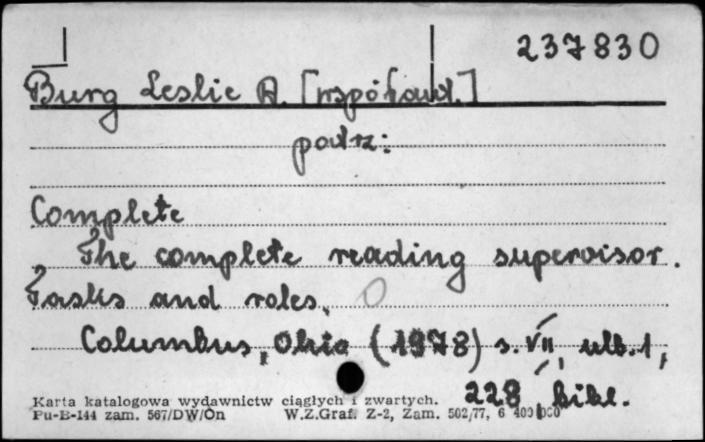 237830
Burg Leslie A. [współaut.]
patrz:
Complete
The complete reading supervisor.
Tasks and roles,
Columbus, Ohio (1978) s. VII, ulb. 1,
228, bibl.
Karta katalogowa wydawnictw ciągłych i zwartych.
Pu-B-144 zam. 567/DW/On W.Z.Graf. Z-2, Zam. 502/77, 6 400 000